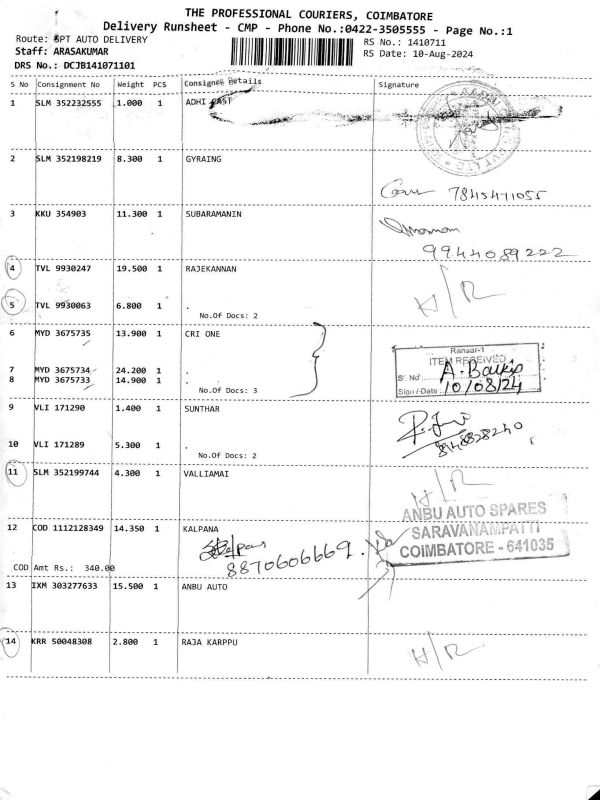 THE PROFESSIONAL COURIERS, COIMBATORE
Delivery Runsheet - CMP - Phone No.:0422-3505555 - Page No.:1
Route: SPT AUTO DELIVERY
RS No.: 1410711
Staff: ARASAKUMAR
RS Date: 10-Aug-2024
DRS No.: DCJB141071101
S No Consignment No Weight PCS Consignee Details Signature
1 SLM 352232555 1.000 1 ADHI FAST
2 SLM 352198219 8.300 1 GYRAING
7845471055
3 KKU 354903 11.300 1 SUBARAMANIN
9944089222
4 TVL 9930247 19.500 1 RAJEKANNAN
H/R
5 TVL 9930063 6.800 1 .
No.Of Docs: 2
6 MYD 3675735 13.900 1 CRI ONE
Ransar-1
ITEM RECEIVED
7 MYD 3675734 24.200 1 .
S. No
8 MYD 3675733 14.900 1 .
Sign/Date 10/08/24
No.Of Docs: 3
9 VLI 171290 1.400 1 SUNTHAR
10 VLI 171289 5.300 1 .
No.Of Docs: 2
11 SLM 352199744 4.300 1 VALLIAMAI
H/R
ANBU AUTO SPARES
SARAVANAMPATTI
COIMBATORE - 641035
12 COD 1112128349 14.350 1 KALPANA
Kalpana
8870606669.
COD Amt Rs.: 340.00
13 IXM 303277633 15.500 1 ANBU AUTO
14 KRR 50048308 2.800 1 RAJA KARPPU
H/R